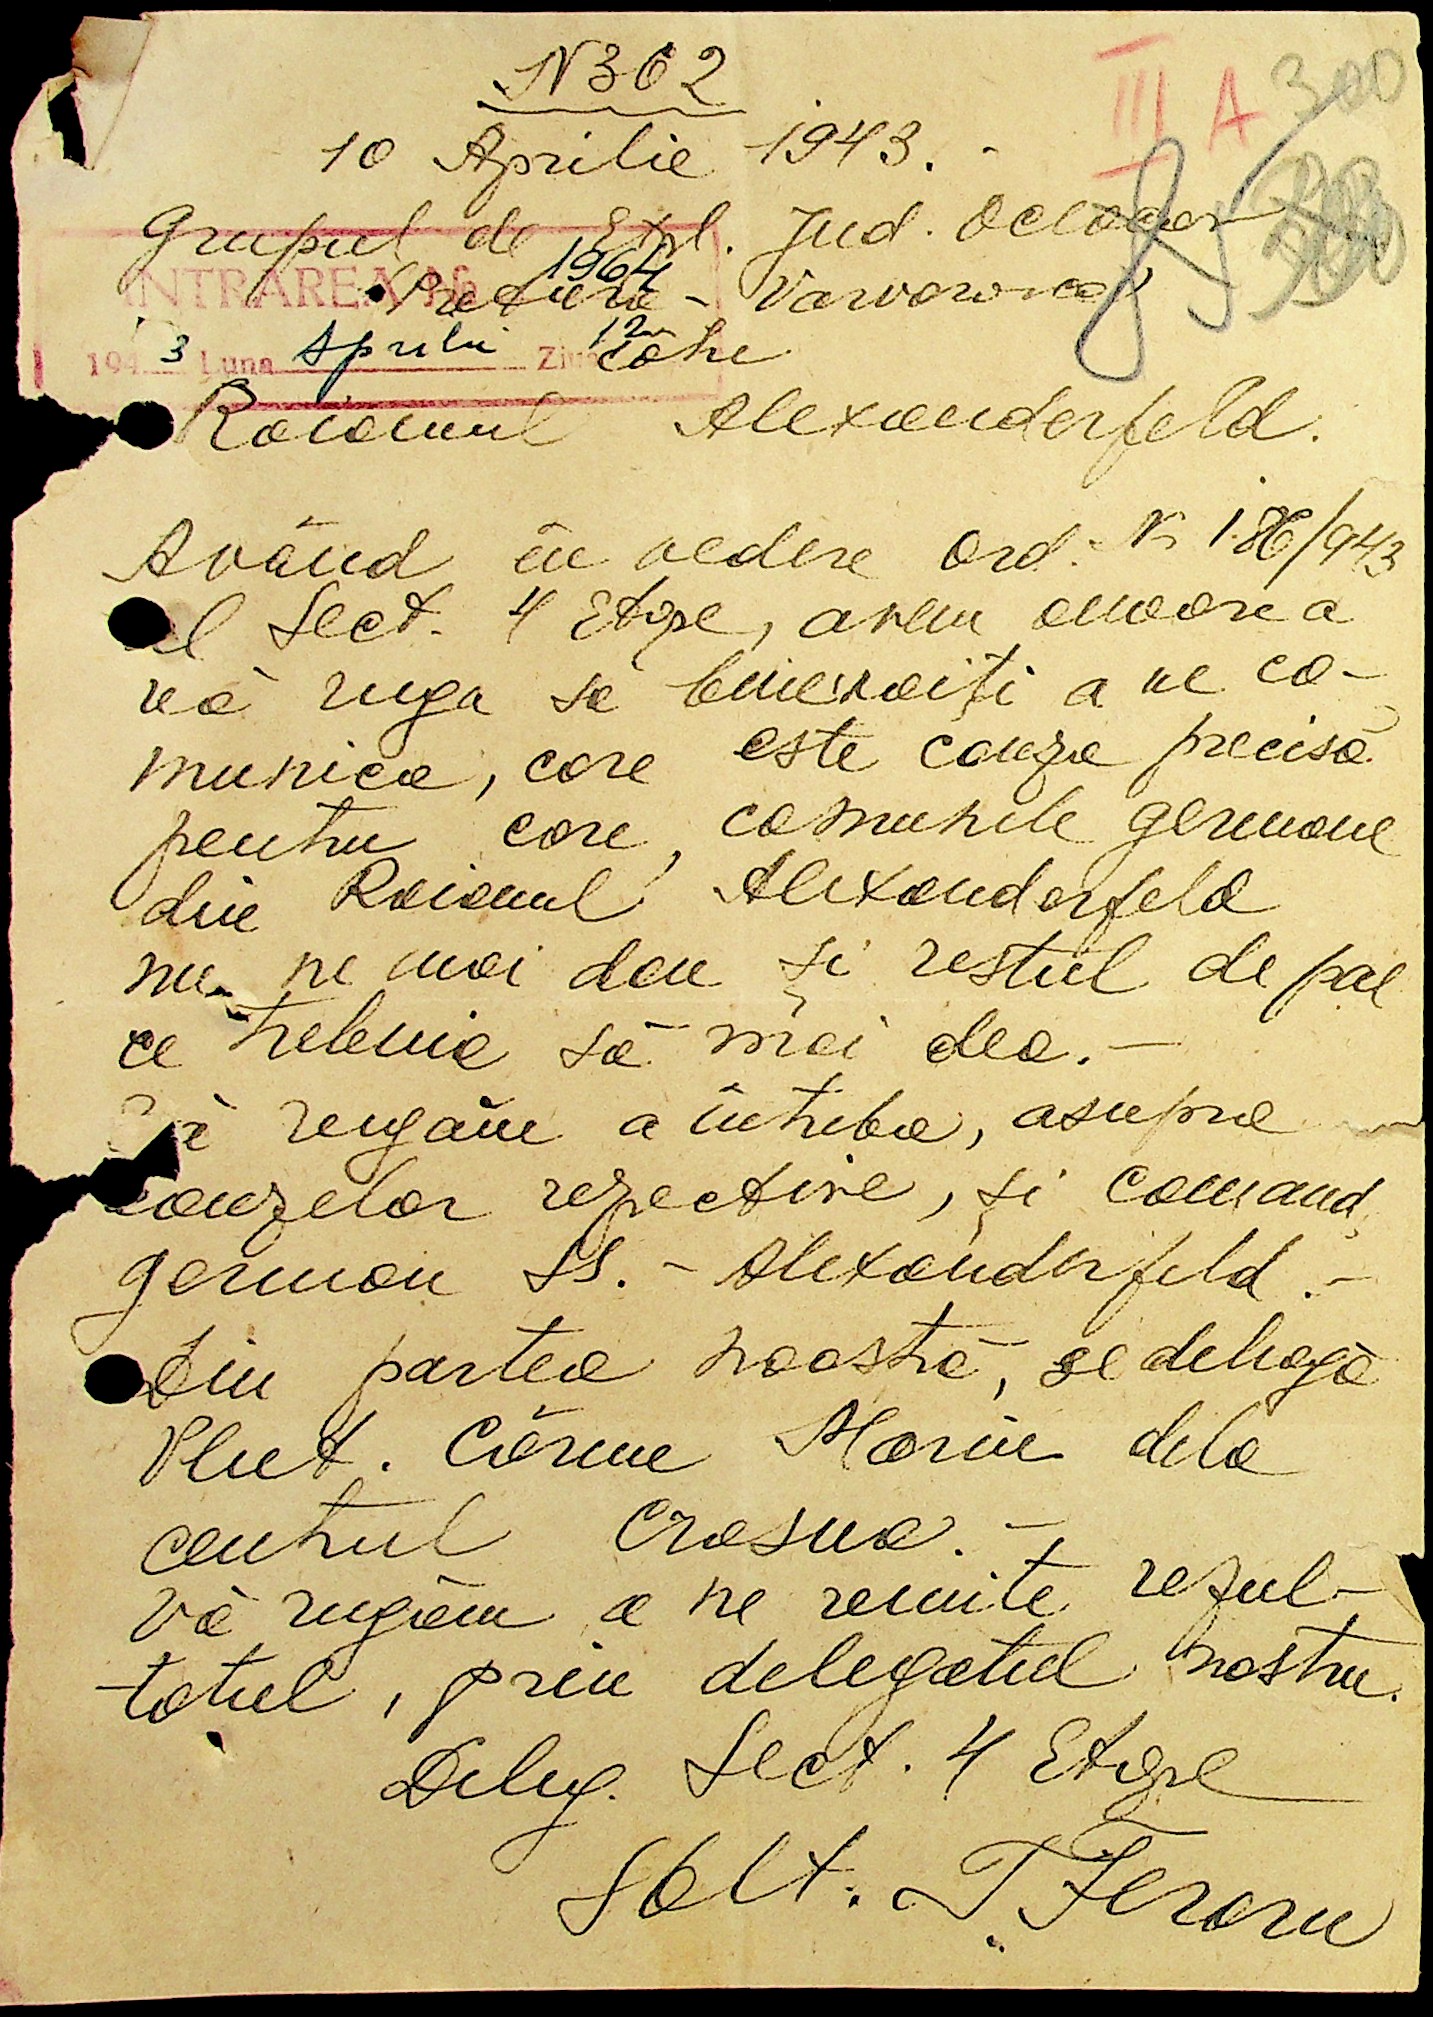 N 302
III A 300
10 Aprilie 1943. -
Grupul de Expl. Jud. Oceacov
Pretura - Varvarovca
INTRAREA No 1964
1943 Luna Aprilie Ziua 12
către
Raionul Alexanderfeld.
Având în vedere Ord. Nr 186/943
al Sect. 4 Etape, avem onoarea
vă ruga să binevoiți a ne co-
munica, care este cauza precisă
pentru care, comunele germane
din Raionul Alexanderfeld
nu ne mai dau și restul de pae
ce trebuia să mai dea. -
Vă rugăm a întreba, asupra
cauzelor respective, și comand.
german SS. - Alexanderfeld. -
Din partea noastră, se deleagă
Plut. Cârnu Marin dela
centrul Crasna. -
Vă rugăm a ne remite rezul-
tatul, prin delegatul nostru.
Deleg. Sect. 4 Etape
Slt. T. Feraru